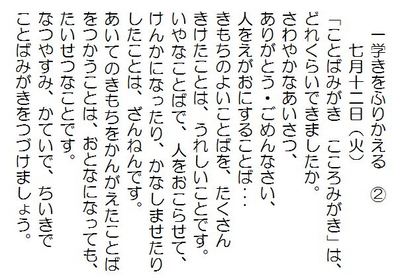 一学きをふりかえる　②
七月十二日（火）
「ことばみがき　こころみがき」は、
どれくらいできましたか。
さわやかなあいさつ、
ありがとう・ごめんなさい、
人をえがおにすることば…
きもちのよいことばを、たくさん
きけたことは、うれしいことです。
いやなことばで、人をおこらせて、
けんかになったり、かなしませたり
したことは、ざんねんです。
あいてのきもちをかんがえたことば
をつかうことは、おとなになっても、
たいせつなことです。
なつやすみ、かていで、ちいきで
ことばみがきをつづけましょう。